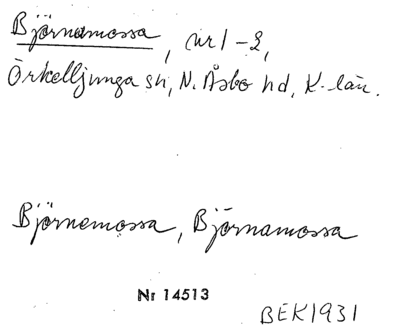 Björnamossa, nr 1-2,
Örkelljunga sn, N. Åsbo hd, K-län.
Björnemossa, Björnamossa
Nr 14513
BEK1931